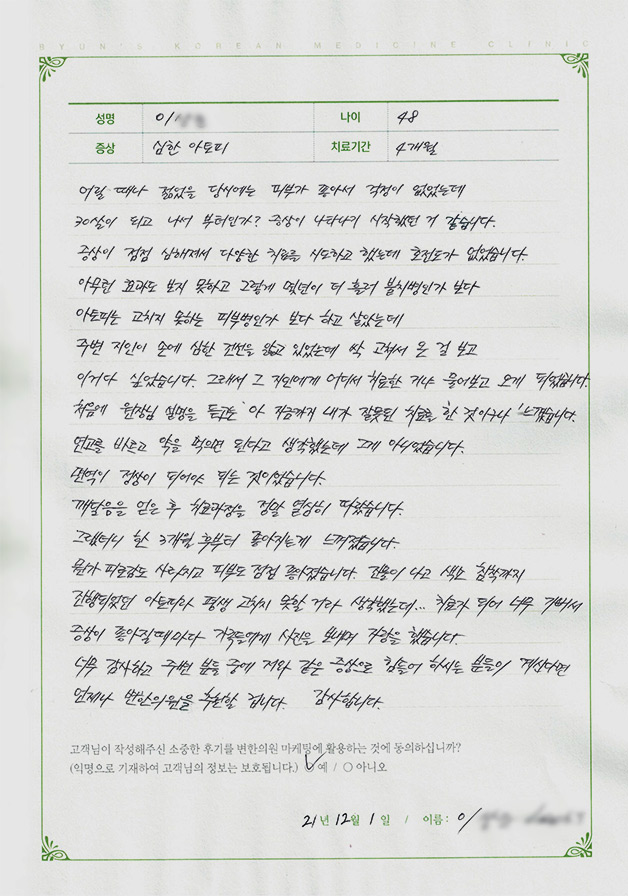 BYUN'S KOREAN MEDICINE CLINIC
성명 이 나이 48
증상 심한 아토피 치료기간 4개월
어릴 때나 젊었을 당시에는 피부가 좋아서 걱정이 없었는데
30살이 되고 나서 부터인가? 증상이 나타나기 시작했던 거 같습니다.
증상이 점점 심해져서 다양한 치료를 시도하고 했는데 호전도가 없었습니다.
아무런 효과도 보지 못하고 그렇게 몇년이 더 흘러 불치병인가 보다
아토피는 고치지 못하는 피부병인가 보다 하고 살았는데
주변 지인이 손에 심한 건선을 앓고 있었는데 싹 고쳐서 온 걸 보고
이거다 싶었습니다. 그래서 그 지인에게 어디서 치료한 거냐 물어보고 오게 되었습니다.
처음에 원장님 설명을 듣고는 '아 지금까지 내가 잘못된 치료를 한 것이구나' 느꼈습니다.
연고를 바르고 약을 먹으면 된다고 생각했는데 그게 아니었습니다.
면역이 정상이 되어야 되는 것이었습니다.
깨달음을 얻은 후 치료과정을 정말 열심히 따랐습니다.
그랬더니 한 3개월 후부터 좋아지는게 느껴졌습니다.
뭔가 피로감도 사라지고 피부도 점점 좋아졌습니다. 진물이 나고 색소 침착까지
진행되었던 아토피라 평생 고치지 못할 거라 생각했는데... 치료가 되어 너무 기뻐서
증상이 좋아질때마다 가족들에게 사진을 보내며 자랑을 했습니다.
너무 감사하고 주변 분들 중에 저와 같은 증상으로 힘들어 하시는 분들이 계신다면
언제나 변한의원을 추천할 겁니다. 감사합니다.
고객님이 작성해주신 소중한 후기를 변한의원 마케팅에 활용하는 것에 동의하십니까?
(익명으로 기재하여 고객님의 정보는 보호됩니다.) ○ 예 / ○ 아니오
21년 12월 1일 / 이름 : 이